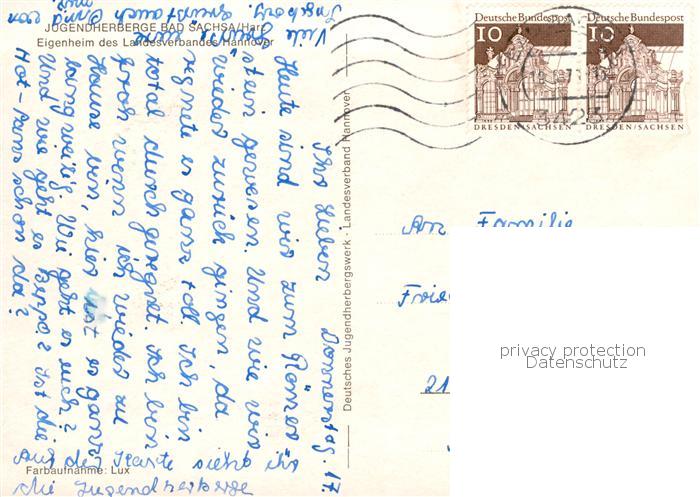 JUGENDHERBERGE BAD SACHSA/Harz
Eigenheim des Landesverbandes Hannover
Donnerstag, 17.
Ihr Lieben
Heute sind wir zum Römer
stein gewesen. Und wie wir
wieder zurück gingen, da
regnete es ganz toll. Ich bin
total durch geregnet. Ich bin
froh wenn ich wieder zu
Hause bin, hier ist es ganz
langweilig. Wie geht es euch?
Und wie geht es Beppo? Ist die
schon da?
Viele Grüße
Ingeborg
grüßt auch Oma von
Auf der Karte sieht ihr
die Jugendherberge
Farbaufnahme: Lux
Deutsches Jugendherbergswerk - Landesverband Hannover
Deutsche Bundespost
10
DRESDEN/SACHSEN
Deutsche Bundespost
10
DRESDEN/SACHSEN
3423
An Familie
21
privacy protection
Datenschutz